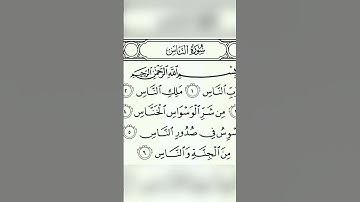 سُورَةُ النَّاسِ
ـسْمِ اللَّهِ الرَّحْمَٰنِ الرَّحِيمِ
ـبِّ النَّاسِ ١ مَلِكِ النَّاسِ ٢
مِن شَرِّ الْوَسْوَاسِ الْخَنَّاسِ ٤
ـوِسُ فِي صُدُورِ النَّاسِ ٥
مِنَ الْجِنَّةِ وَالنَّاسِ ٦